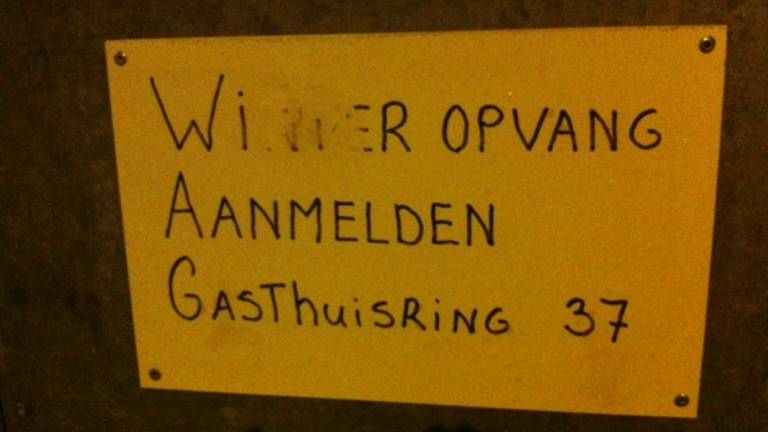 WiNTER OPVANG
AANMELDEN
GASThuisRiNG 37